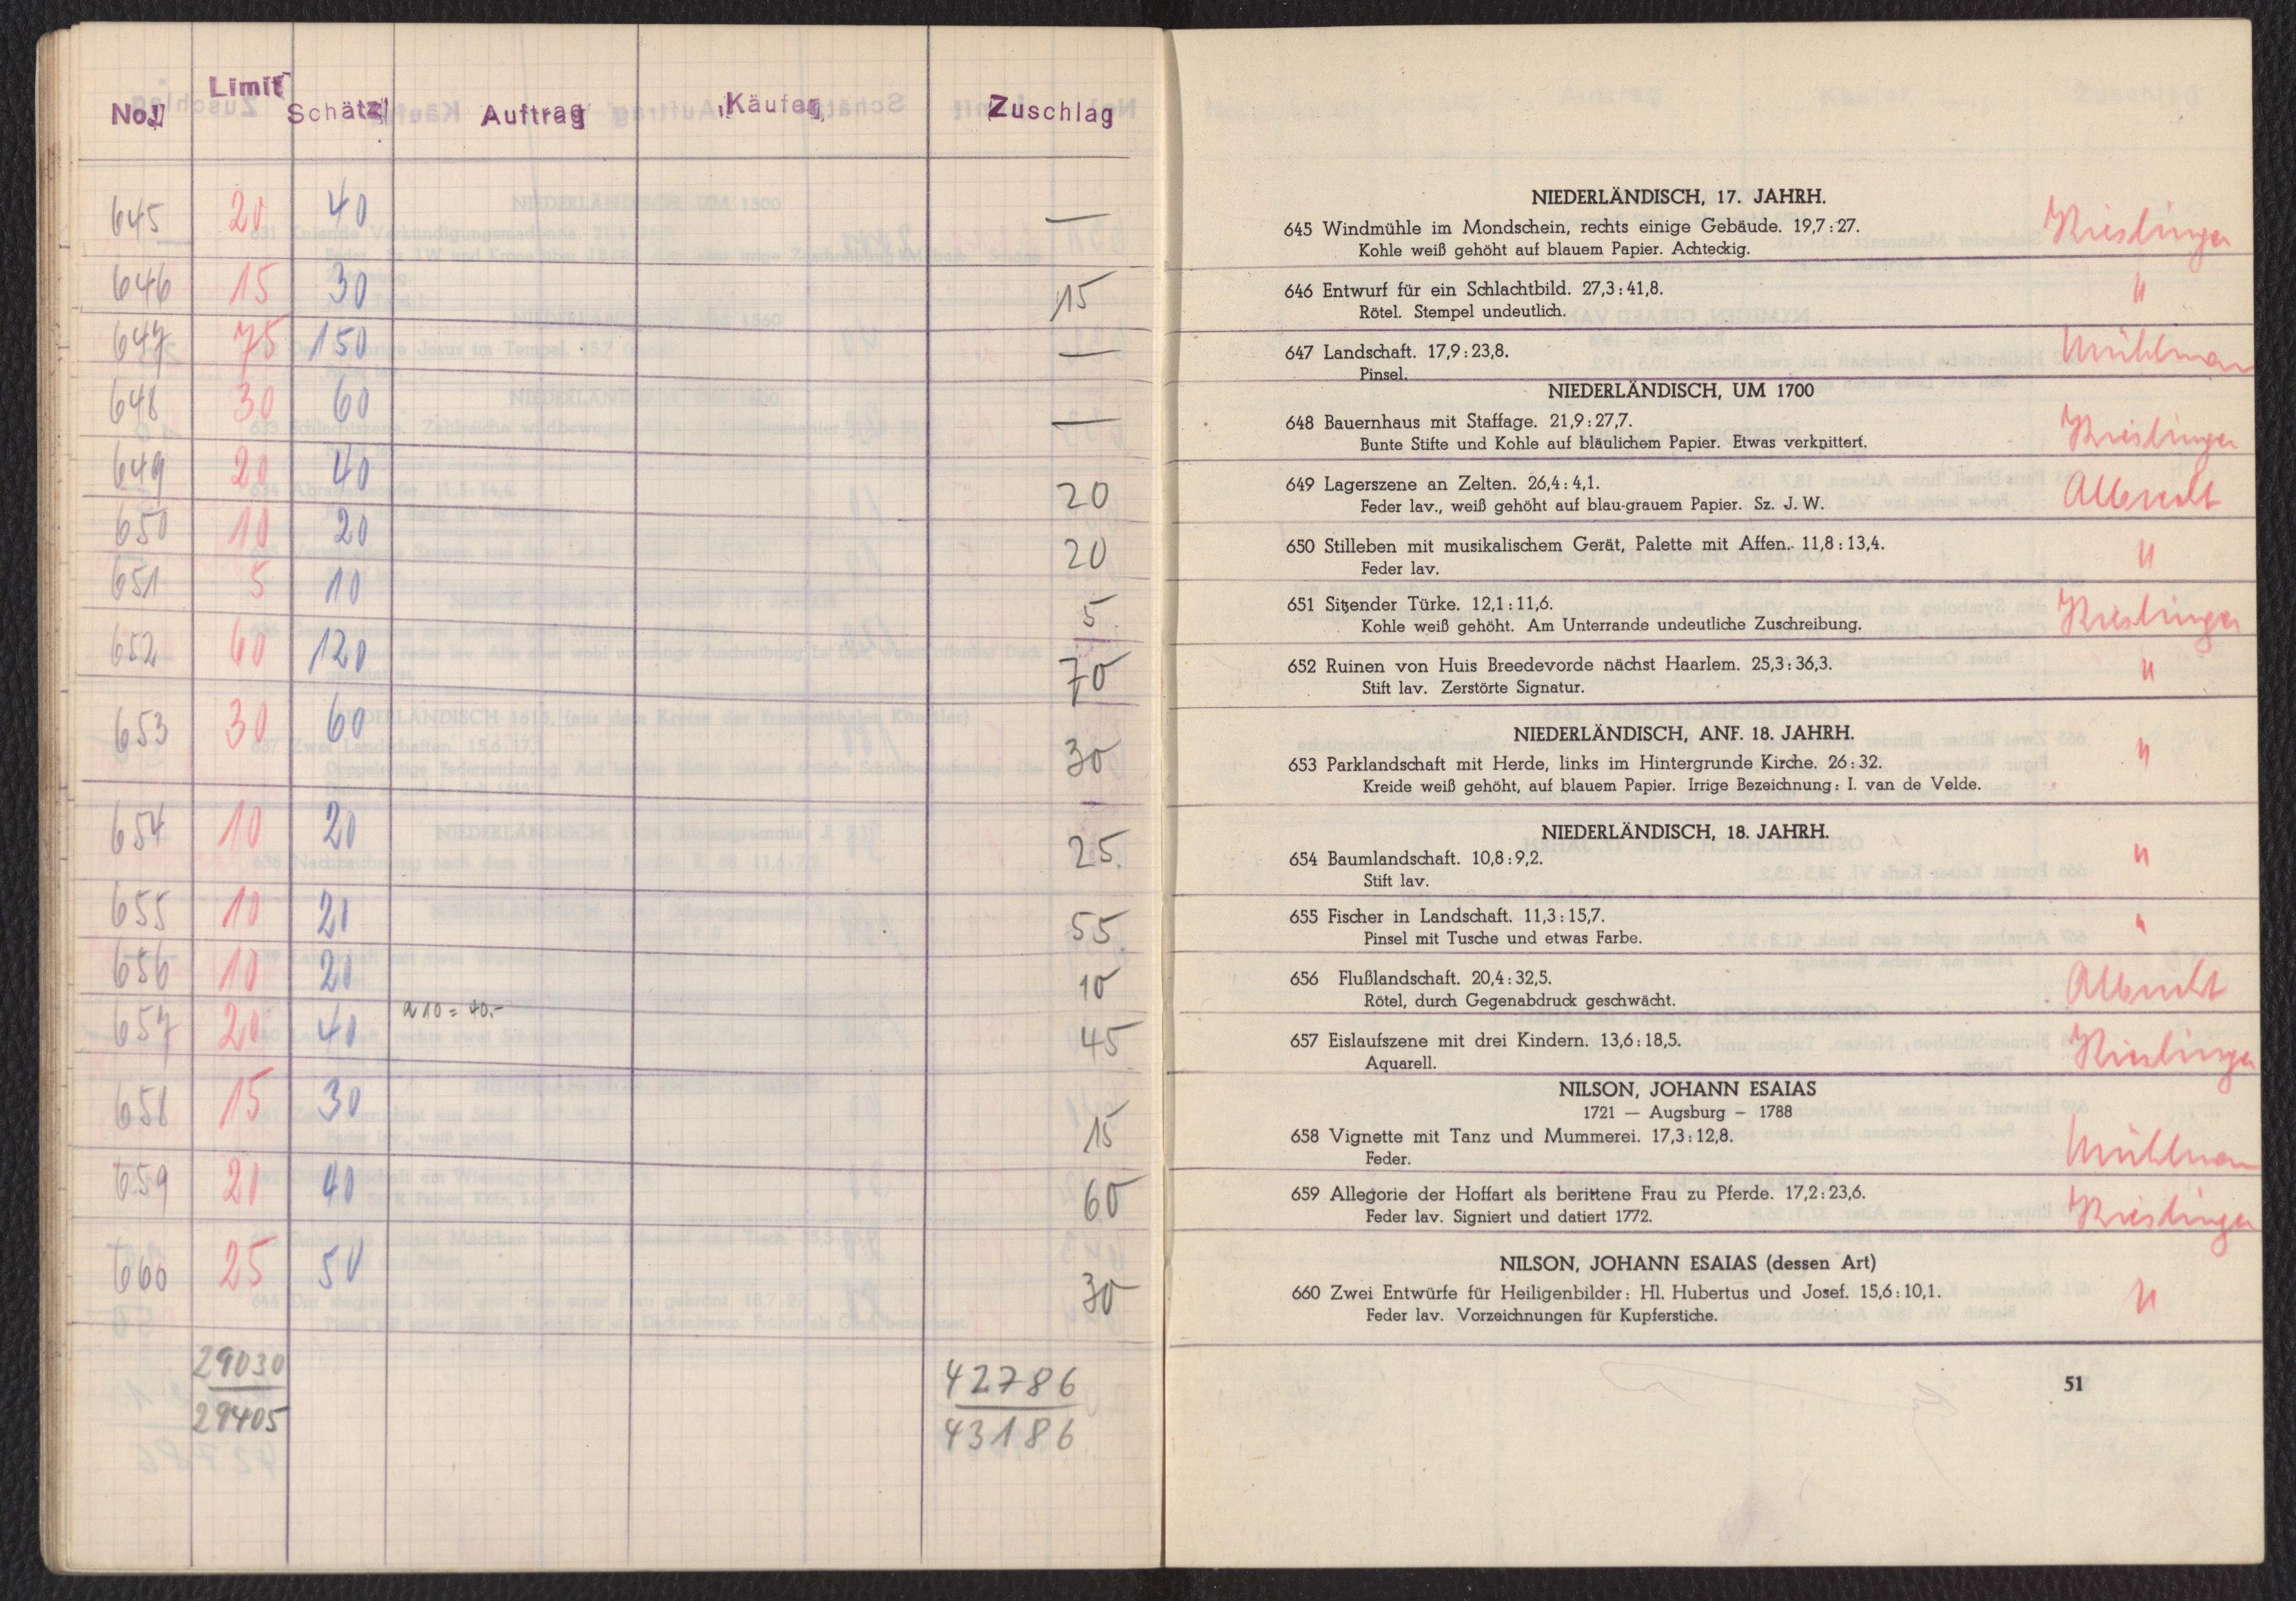 No. Limit Schätz Auftrag Käufer Zuschlag
645 20 40 —
646 15 30 15
647 75 150 —
648 30 60 —
649 20 40 20
650 10 20 20
651 5 10 5
652 60 120 70
653 30 60 30
654 10 20 25.
655 10 20 55
656 10 20 10
657 20 40 a 10 = 40.- 45
658 15 30 15
659 20 40 60
660 25 50 30
29030 42786
29405 43186
NIEDERLÄNDISCH, 17. JAHRH.
645 Windmühle im Mondschein, rechts einige Gebäude. 19,7 : 27. Kieslinger
Kohle weiß gehöht auf blauem Papier. Achteckig.
646 Entwurf für ein Schlachtbild. 27,3 : 41,8. "
Rötel. Stempel undeutlich.
647 Landschaft. 17,9 : 23,8. Mühlman
Pinsel.
NIEDERLÄNDISCH, UM 1700
648 Bauernhaus mit Staffage. 21,9 : 27,7. Kieslinger
Bunte Stifte und Kohle auf bläulichem Papier. Etwas verknittert.
649 Lagerszene an Zelten. 26,4 : 4,1. Albrecht
Feder lav., weiß gehöht auf blau-grauem Papier. Sz. J. W.
650 Stilleben mit musikalischem Gerät, Palette mit Affen. 11,8 : 13,4. "
Feder lav.
651 Sitzender Türke. 12,1 : 11,6. Kieslinger
Kohle weiß gehöht. Am Unterrande undeutliche Zuschreibung.
652 Ruinen von Huis Breedevorde nächst Haarlem. 25,3 : 36,3. "
Stift lav. Zerstörte Signatur.
NIEDERLÄNDISCH, ANF. 18. JAHRH.
653 Parklandschaft mit Herde, links im Hintergrunde Kirche. 26 : 32. "
Kreide weiß gehöht, auf blauem Papier. Irrige Bezeichnung: I. van de Velde.
NIEDERLÄNDISCH, 18. JAHRH.
654 Baumlandschaft. 10,8 : 9,2. "
Stift lav.
655 Fischer in Landschaft. 11,3 : 15,7. "
Pinsel mit Tusche und etwas Farbe.
656 Flußlandschaft. 20,4 : 32,5. Albrecht
Rötel, durch Gegenabdruck geschwächt.
657 Eislaufszene mit drei Kindern. 13,6 : 18,5. Kieslinger
Aquarell.
NILSON, JOHANN ESAIAS
1721 — Augsburg — 1788
658 Vignette mit Tanz und Mummerei. 17,3 : 12,8. Mühlman
Feder.
659 Allegorie der Hoffart als berittene Frau zu Pferde. 17,2 : 23,6. Kieslinger
Feder lav. Signiert und datiert 1772.
NILSON, JOHANN ESAIAS (dessen Art)
660 Zwei Entwürfe für Heiligenbilder: Hl. Hubertus und Josef. 15,6 : 10,1. "
Feder lav. Vorzeichnungen für Kupferstiche.
51